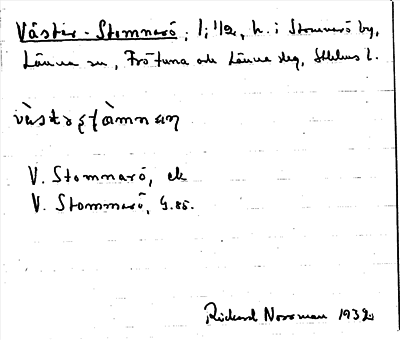 Väster-Stommarö, 1; 1/2, h. i Stommarö by,
Länna sn, Frötuna och Länna slg, Sthlms l.
V. Stommarö, ek
V. Stommarö, G.85.
Rickard Norrman 1932